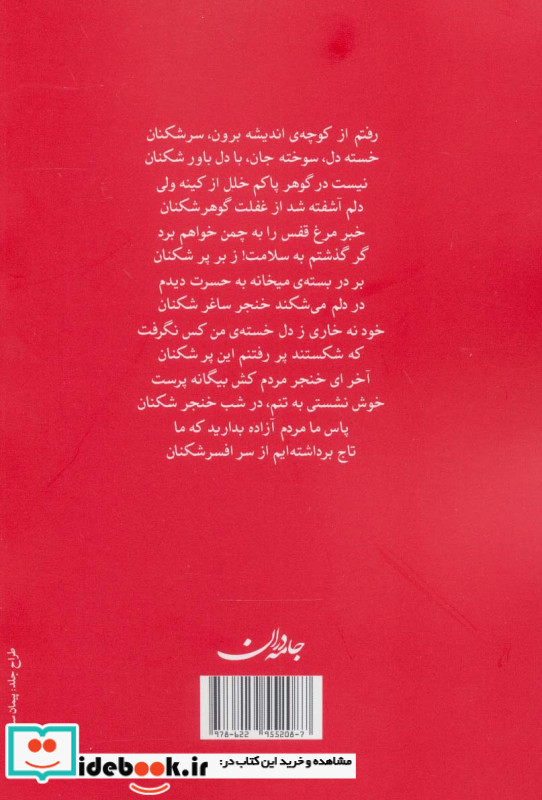 رفتم از کوچه‌ی اندیشه برون، سرشکنان
خسته دل، سوخته جان، با دل باور شکنان
نیست در گوهر پاکم خلل از کینه ولی
دلم آشفته شد از غفلت گوهرشکنان
خبر مرغ قفس را به چمن خواهم برد
گر گذشتم به سلامت! ز بر پر شکنان
بر در بسته‌ی میخانه به حسرت دیدم
در دلم می‌شکند خنجر ساغر شکنان
خود نه خاری ز دل خسته‌ی من کس نگرفت
که شکستند پر رفتنم این پر شکنان
آخر ای خنجر مردم کش بیگانه پرست
خوش نشستی به تنم، در شب خنجر شکنان
پاس ما مردم آزاده بدارید که ما
تاج برداشته‌ایم از سر افسرشکنان
جامه‌دران
978-622
955208-7
طراح جلد: پیمان
مشاهده و خرید این کتاب در:
idebook.ir